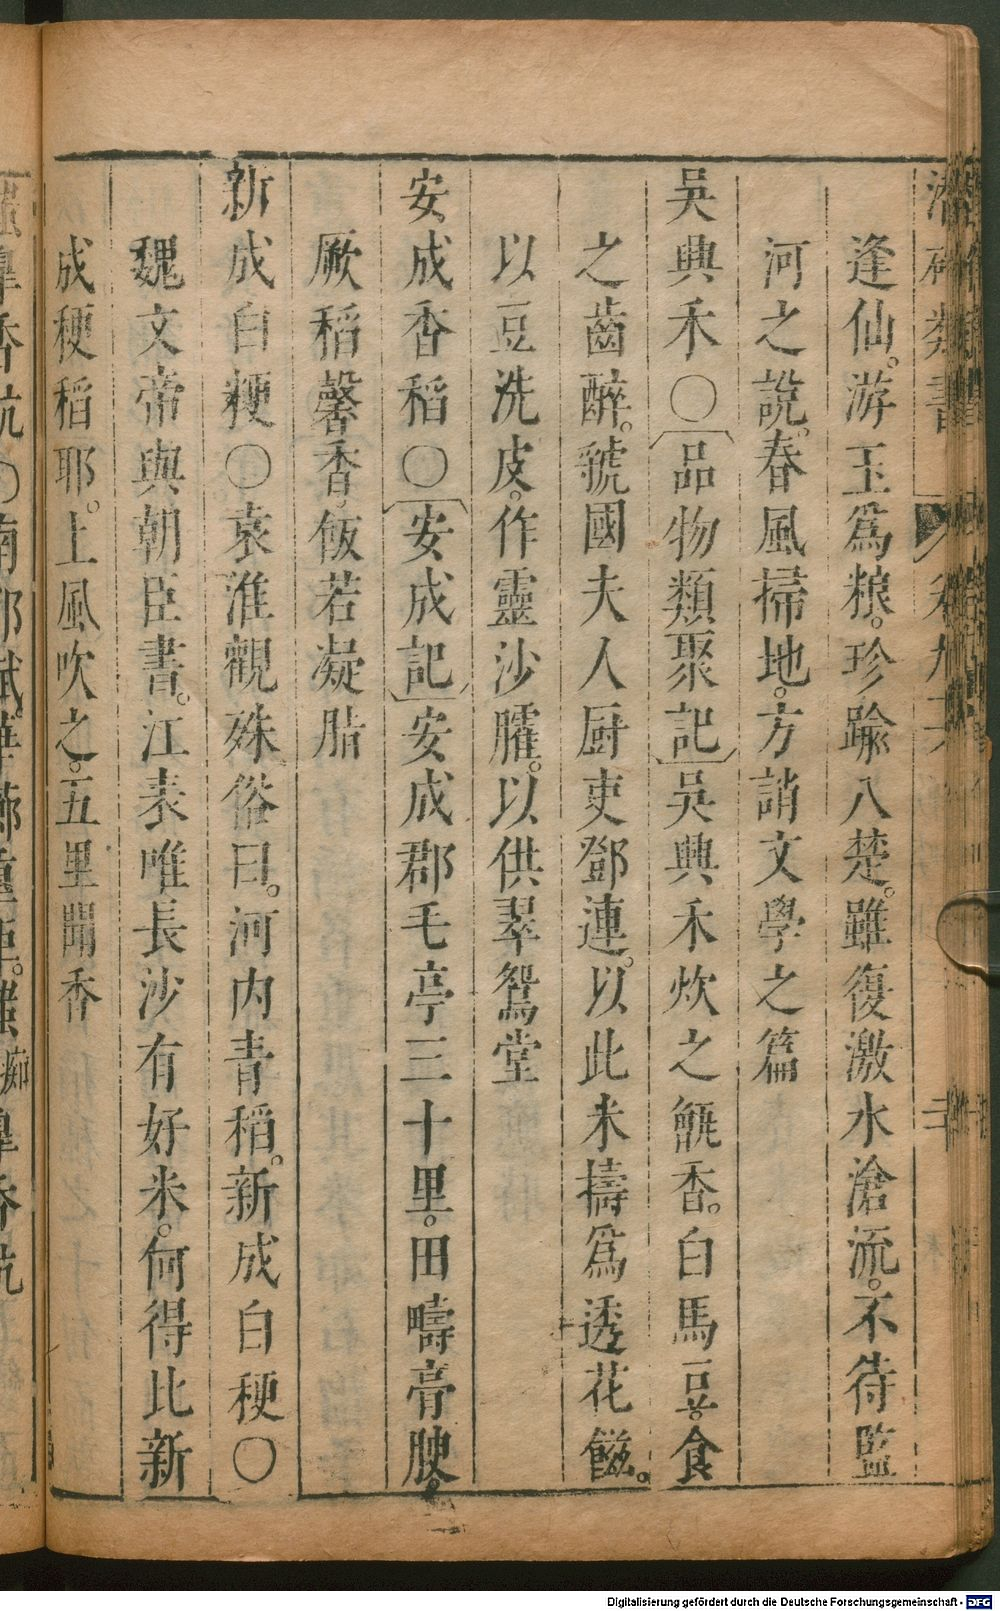 逢仙。游玉爲粮。珍踰八楚。雖復激水滄流。不待監
河之說。春風掃地。方誚文學之篇
吳興禾〇〔品物類聚記〕吳興禾炊之甑香。白馬豆。食
之齒醉。虢國夫人厨吏鄧連。以此米擣爲透花餈。
以豆洗皮。作靈沙臛。以供翠鴛堂
安成香稻〇〔安成記〕安成郡毛亭三十里。田疇膏腴。
厥稻馨香。飯若凝脂
新成白粳〇袁淮觀殊俗曰。河内青稻。新成白稉〇
魏文帝與朝臣書。江表唯長沙有好米。何得比新
成稉稻耶。上風吹之。五里聞香
Digitalisierung gefördert durch die Deutsche Forschungsgemeinschaft - DFG